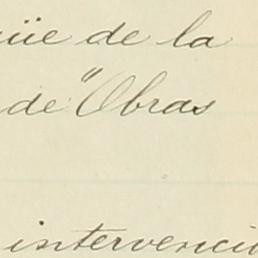 üe de la
de "Obras
intervenci